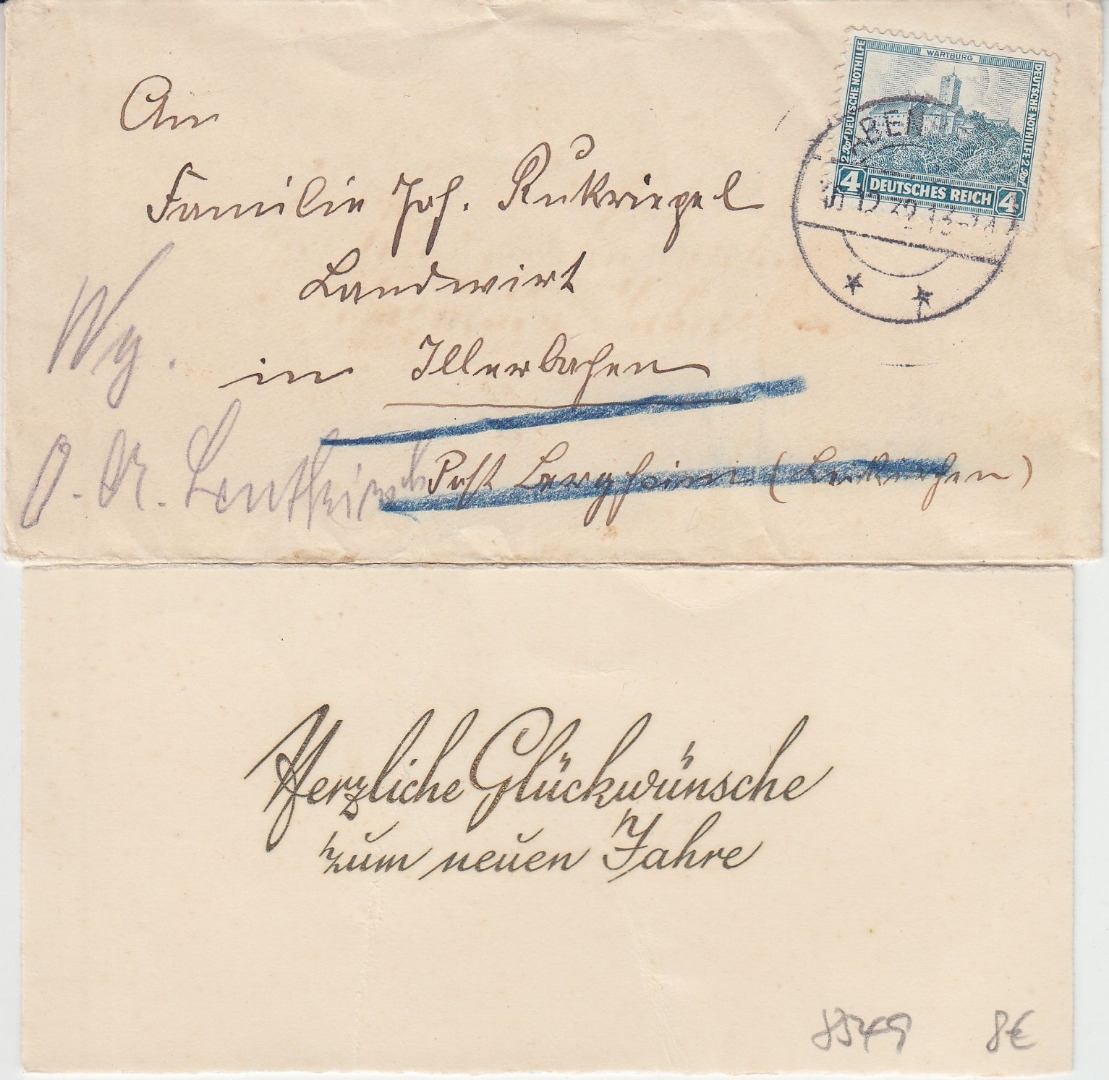 An
Familie Jos. Rukriegel
Landwirt
in Illerbachen
Post Bergheim (
Wg.
O. A. Leutkirch
WARTBURG
2 Rpf DEUTSCHE NOTHILFE
DEUTSCHE NOTHILFE 2 Rpf
4 DEUTSCHES REICH 4
12.32.13-14
Herzliche Glückwünsche
zum neuen Jahre
8549 8€